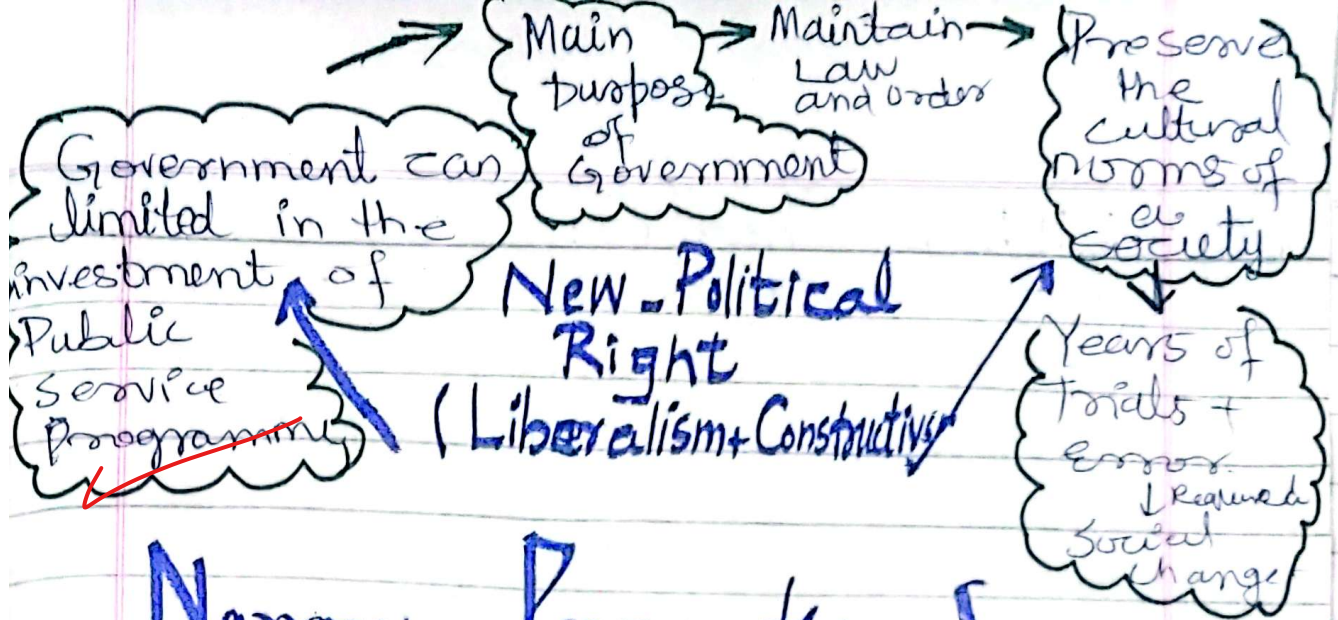 Main
purpose
of
Government
Maintain
Law
and order
Preserve
the
cultural
norms of
a
society
Government can
limited in the
investment of
Public
Service
Programme
New-Political
Right
(Liberalism+Constructivs
Years of
Trials +
Error
↓ Required
Social
Change